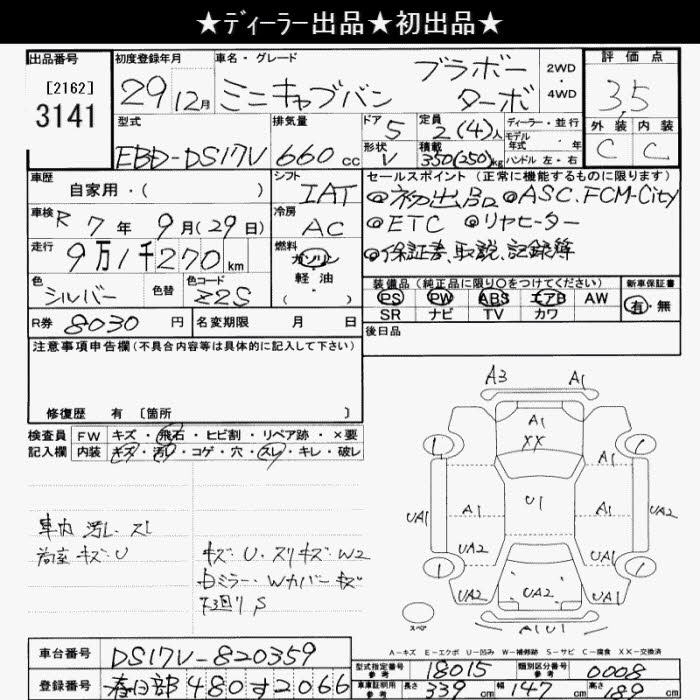 ★ディーラー出品★初出品★
出品番号 初度登録年月 車名・グレード 評価点
[2162]
3141
29 12月 ミニキャブバン ブラボー ターボ 2WD・4WD 3.5
型式 排気量 ドア 5 定員 2(4)人 ディーラー・並行 外装 内装
EBD-DS17V 660cc 形状 V 積載 350(250)kg モデル年式・年 C C
ハンドル 左・右
車歴 自家用・( ) シフト IAT セールスポイント(正常に機能するものに限ります)
◎初出品 ◎ASC.FCM-City
車検 R 7年 9月(29日) 冷房 AC
◎ETC ◎リヤヒーター
走行 9万1千270km 燃料 ガソリン 軽油 ( ・ )
◎保証書、取説、記録簿
色 シルバー 色替 色コード Z2S
装備品(純正品に限り○をつけてください) 新車保証書
PS PW ABS エアB AW 有・無
SR ナビ TV カワ
R券 8030円 名変期限 月 日
後日品
注意事項申告欄(不具合内容等は具体的に記入して下さい)
修復歴 有 [箇所 ]
検査員記入欄 FW キズ・飛石・ヒビ割・リペア跡・×要
内装 キズ・汚れ・コゲ・穴・スレ・キレ・破レ
車内 汚レ・スレ
荷室 キズ・U
キズ・U・スリキズ・W2
ミラー・Wカバーキズ
下廻り S
A3 A1
A1
XX
A1 A1
U1
A1 A1
UA1 UA2
UA2 UA1
UA2 UA2 UA2
A1U1
スペア
A－キズ E－エクボ U－凹み W－補修跡 S－サビ C－腐食 XX－交換済
車台番号 DS17V-820359
型式指定番号 参考 18015 類別区分番号 参考 0008
登録番号 春日部 480 す 2066
車庫証明用 参考 長さ 339cm 幅 147cm 高さ 189cm